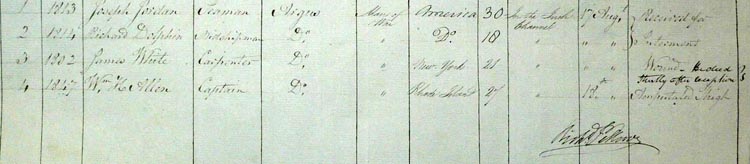 1 1813 Joseph Jordan Seaman Argus Man of War America 30 In the Irish Channel 17 Augt Received for
2 1814 Richard Delphin Midshipman Do " Do 18 " " " Interment
3 1802 James White Carpenter Do " New York 26 " " " Wound - He died shortly after reception
4 1847 Wm H Allen Captain Do " Rhode Island 27 " 18th " Amputated thigh
Richd